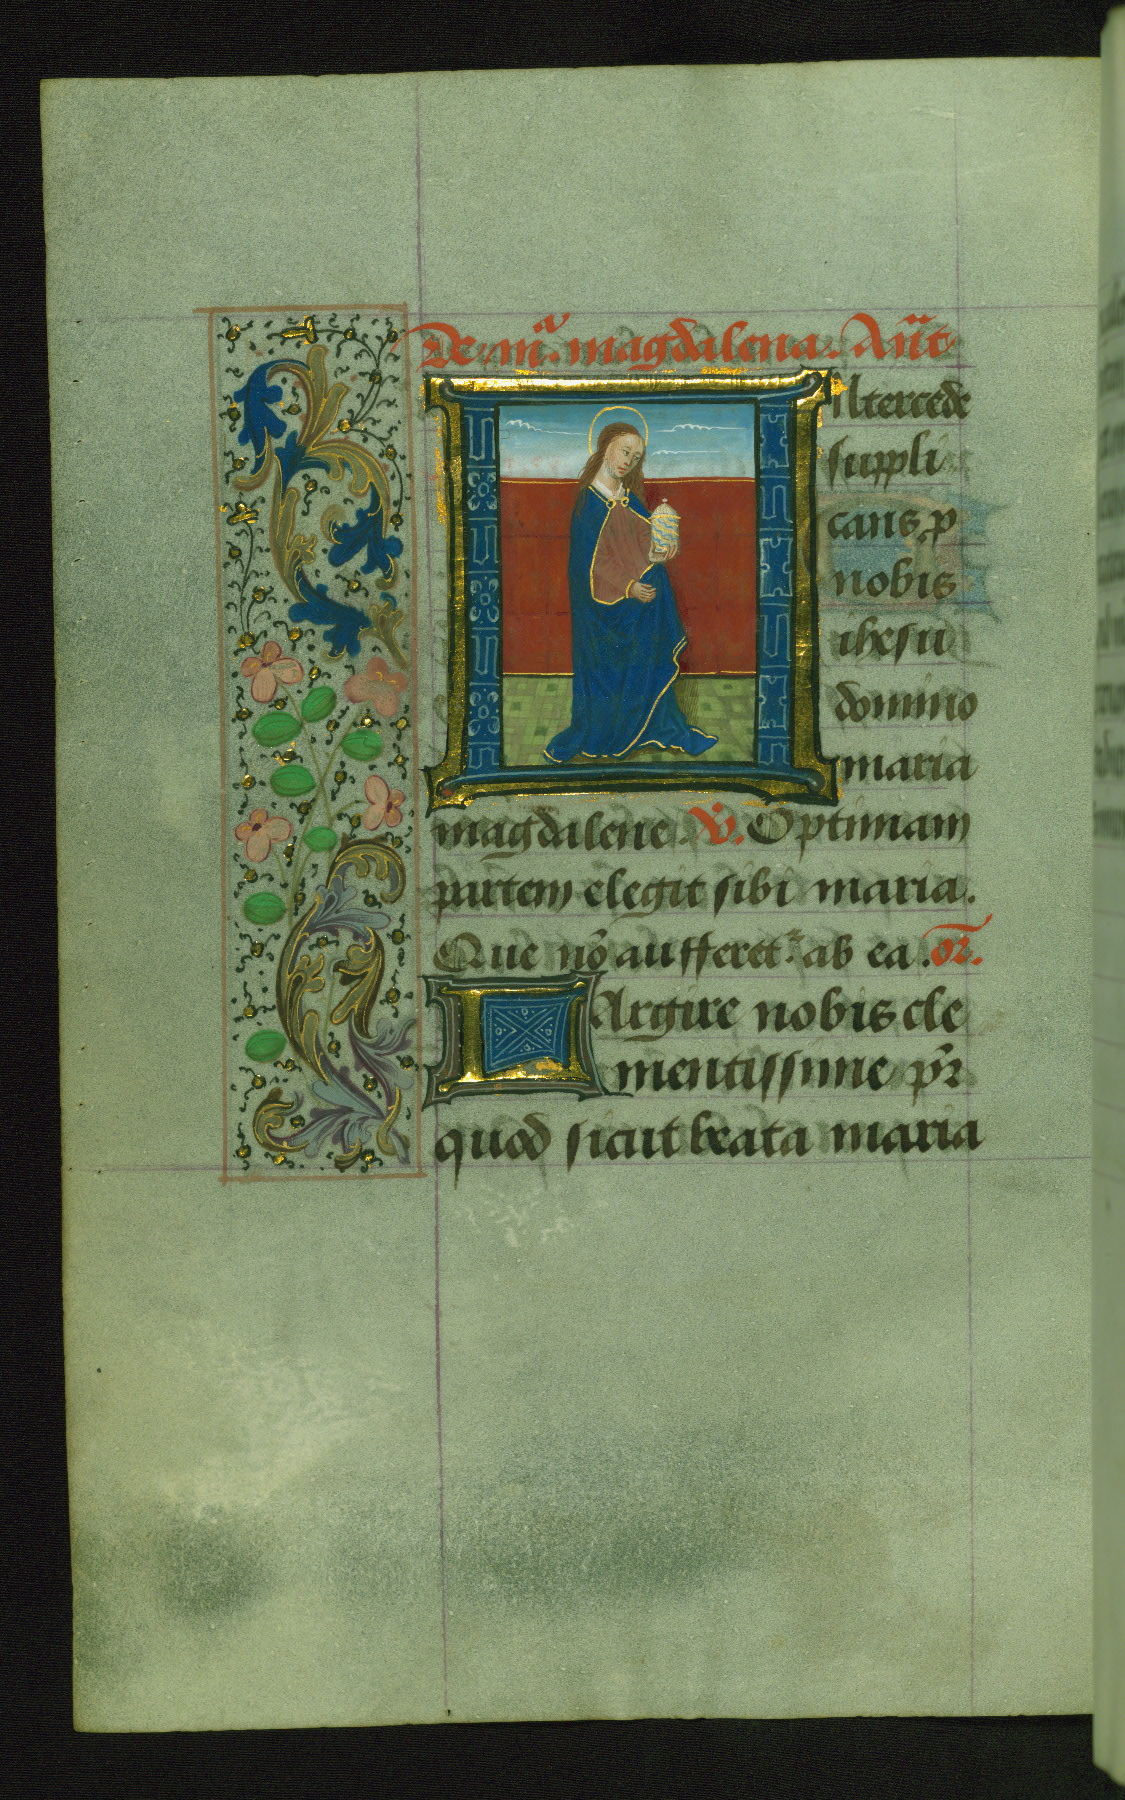 De mᵃ. magdalena. Añt
Intercede
suppli
cans p
nobis
ihesu
domino
maria
magdalene. V̇. Optimam
partem elegit sibi maria.
Que nō aufferet᷑ ab ea. or̃.
Largire nobis cle
mentissime pr̃
quod sicut beata maria